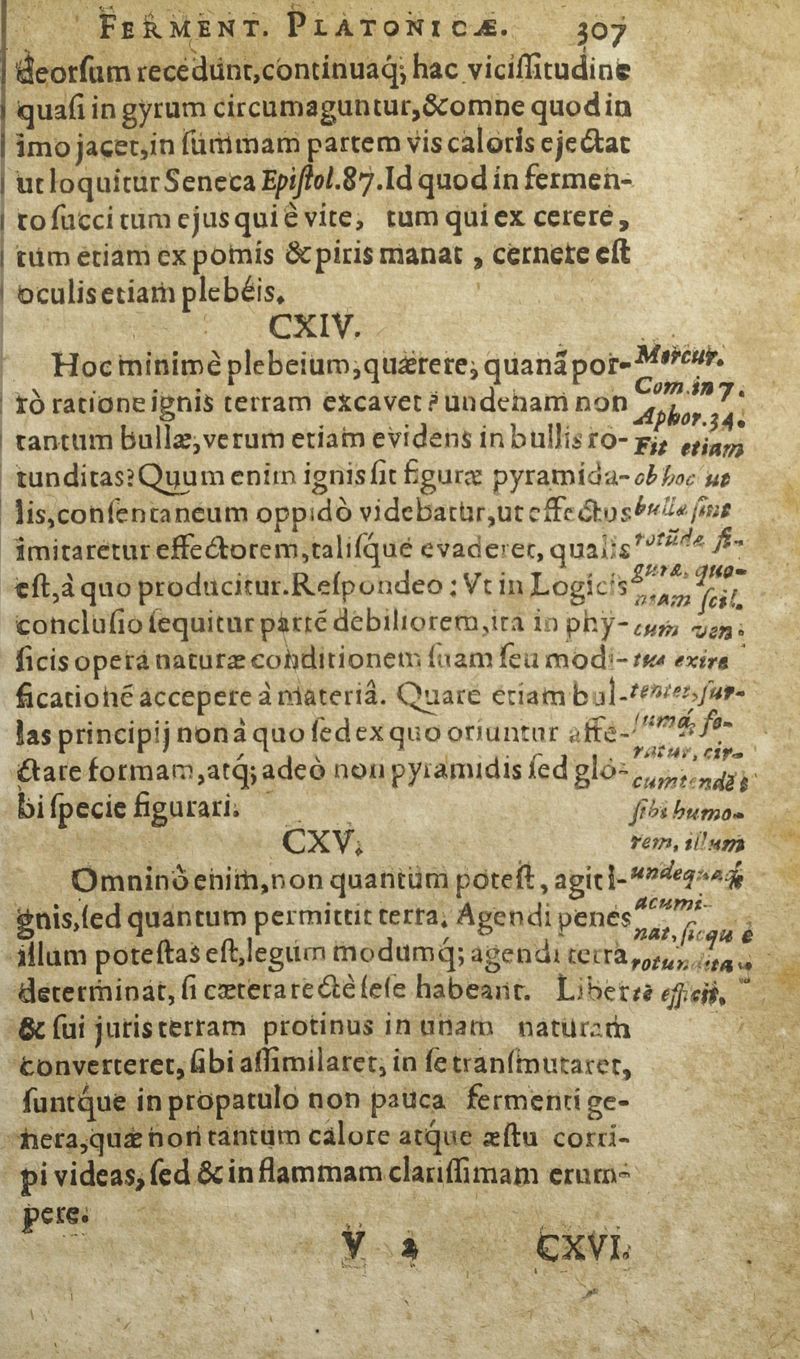 FERMENT. PLATONICÆ. 307
deorſum recedunt, continuaq; hac viciſſitudine
quaſi in gyrum circumaguntur, & omne quod in
imo jacet, in ſummam partem vis caloris ejectat
ut loquitur Seneca Epiſtol. 87. Id quod in fermen-
to ſucci tum ejus qui è vite, tum qui ex cerere,
tum etiam ex pomis & piris manat, cernere eſt
oculis etiam plebéis.
CXIV.
Hoc minimè plebeium, quærere, quanã por-
rò ratione ignis terram excavet? unde nam non
tantum bullæ, verum etiam evidens in bullis ro-
tunditas? Quum enim ignis ſit figuræ pyramida-
lis, conſentaneum oppidò videbatur, ut effectus
imitaretur effectorem, taliſque evaderet, qualis
eſt, à quo producitur. Reſpondeo: Vt in Logicis
concluſio ſequitur partē debiliorem, ita in phy-
ſicis opera naturæ conditionem ſuam ſeu modi-
ficationē accepere à materiâ. Quare etiam bul-
las principij non à quo ſed ex quo oriuntur affe-
ctare formam, atq; adeò non pyramidis ſed glo-
bi ſpecie figurari.
Mercur.
Com. in 7.
Aphor. 34.
Fit etiam
ob hoc ut
bullæ ſint
rotūdæ fi-
guræ, quo-
niam ſcil.
cum ven-
tus exire
tentet, ſur-
ſumq́; fe-
ratur, cir-
cumtendēs
ſibi humo-
rem, illum
undequaq́;
acumi-
nat, ſicque è
rotunditate
efficit.
CXV.
Omninò enim, non quantùm poteſt, agit i-
gnis, ſed quantum permittit terra. Agendi penes
illum poteſtas eſt, legum modumq; agendi terra
determinat, ſi cætera rectè ſeſe habeant. Liber
& ſui juris terram protinus in unam naturam
converteret, ſibi aſſimilaret, in ſe tranſmutaret,
ſuntque in propatulo non pauca fermenti ge-
nera, quæ non tantum calore atque æſtu corri-
pi videas, ſed & in flammam clariſſimam erum-
pere.
V CXVI.